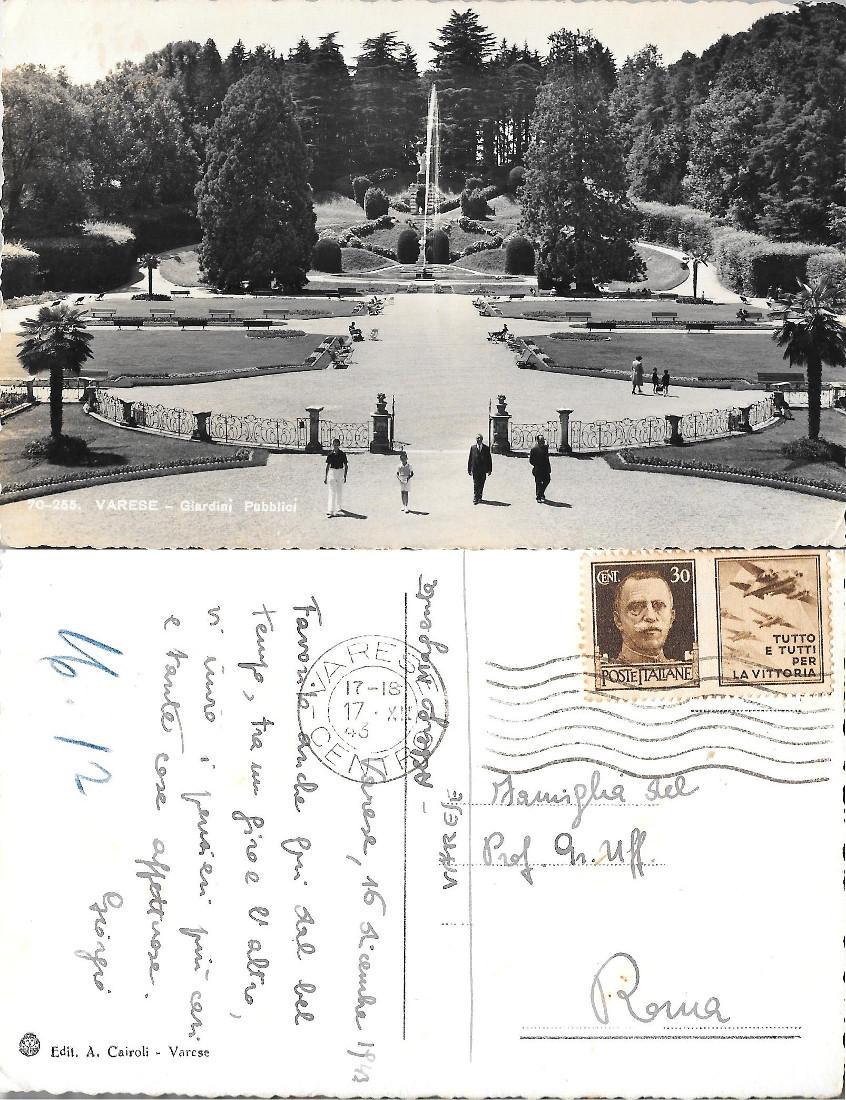 70-255. VARESE - Giardini Pubblici
CENT. 30
POSTE ITALIANE
TUTTO
E TUTTI
PER
LA VITTORIA
VARESE
17-18
17 · XII
43
CENTRO
VARESE
Varese, 16 dicembre 1943
Favorito anche qui dal bel
tempo, tra un giro e l'altro,
vi invio i pensieri più cari
e tante cose affettuose.
Giorgio
16.12
Famiglia del
Prof. Gr. Uff.
Roma
Edit. A. Cairoli - Varese